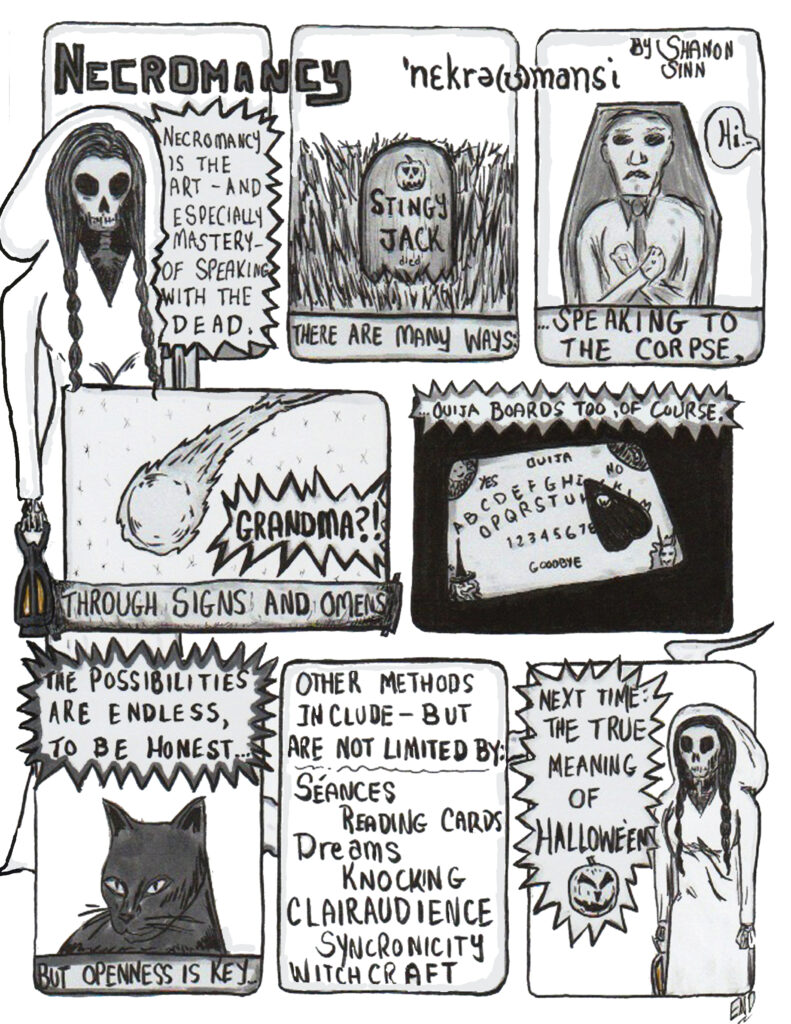 NECROMANCY
'nɛkrə(ʊ)mansi
BY SHANON
SINN
NECROMANCY
IS THE
ART - AND
ESPECIALLY
MASTERY-
OF SPEAKING
WITH THE
DEAD.
STINGY
JACK
died
THERE ARE MANY WAYS:
Hi..
...SPEAKING TO
THE CORPSE,
GRANDMA?!
THROUGH SIGNS AND OMENS
...OUIJA BOARDS TOO, OF COURSE.
OUIJA
YES
NO
ABCDEFGHI
OPQRSTU
12345678
GOODBYE
THE POSSIBILITIES
ARE ENDLESS,
TO BE HONEST...
BUT OPENNESS IS KEY...
OTHER METHODS
INCLUDE - BUT
ARE NOT LIMITED BY:
SÉANCES
READING CARDS
Dreams
KNOCKING
CLAIRAUDIENCE
SYNCRONICITY
WITCHCRAFT
NEXT TIME:
THE TRUE
MEANING
OF
HALLOWEEN
END